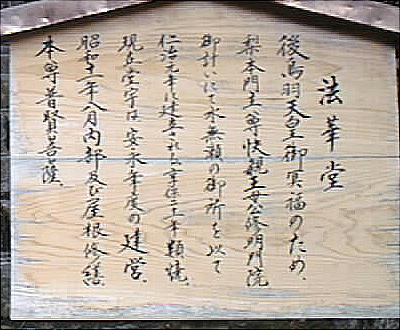 法華堂
後鳥羽天皇御冥福のため、
梨本門主尊快親王母公修明門院
御計いにて水無瀬の御所を以て
仁治元年に建立され享徳二年類焼、
現在堂宇は安永年度の建営、
昭和十一年八月内部及び屋根修繕、
本尊普賢菩薩、